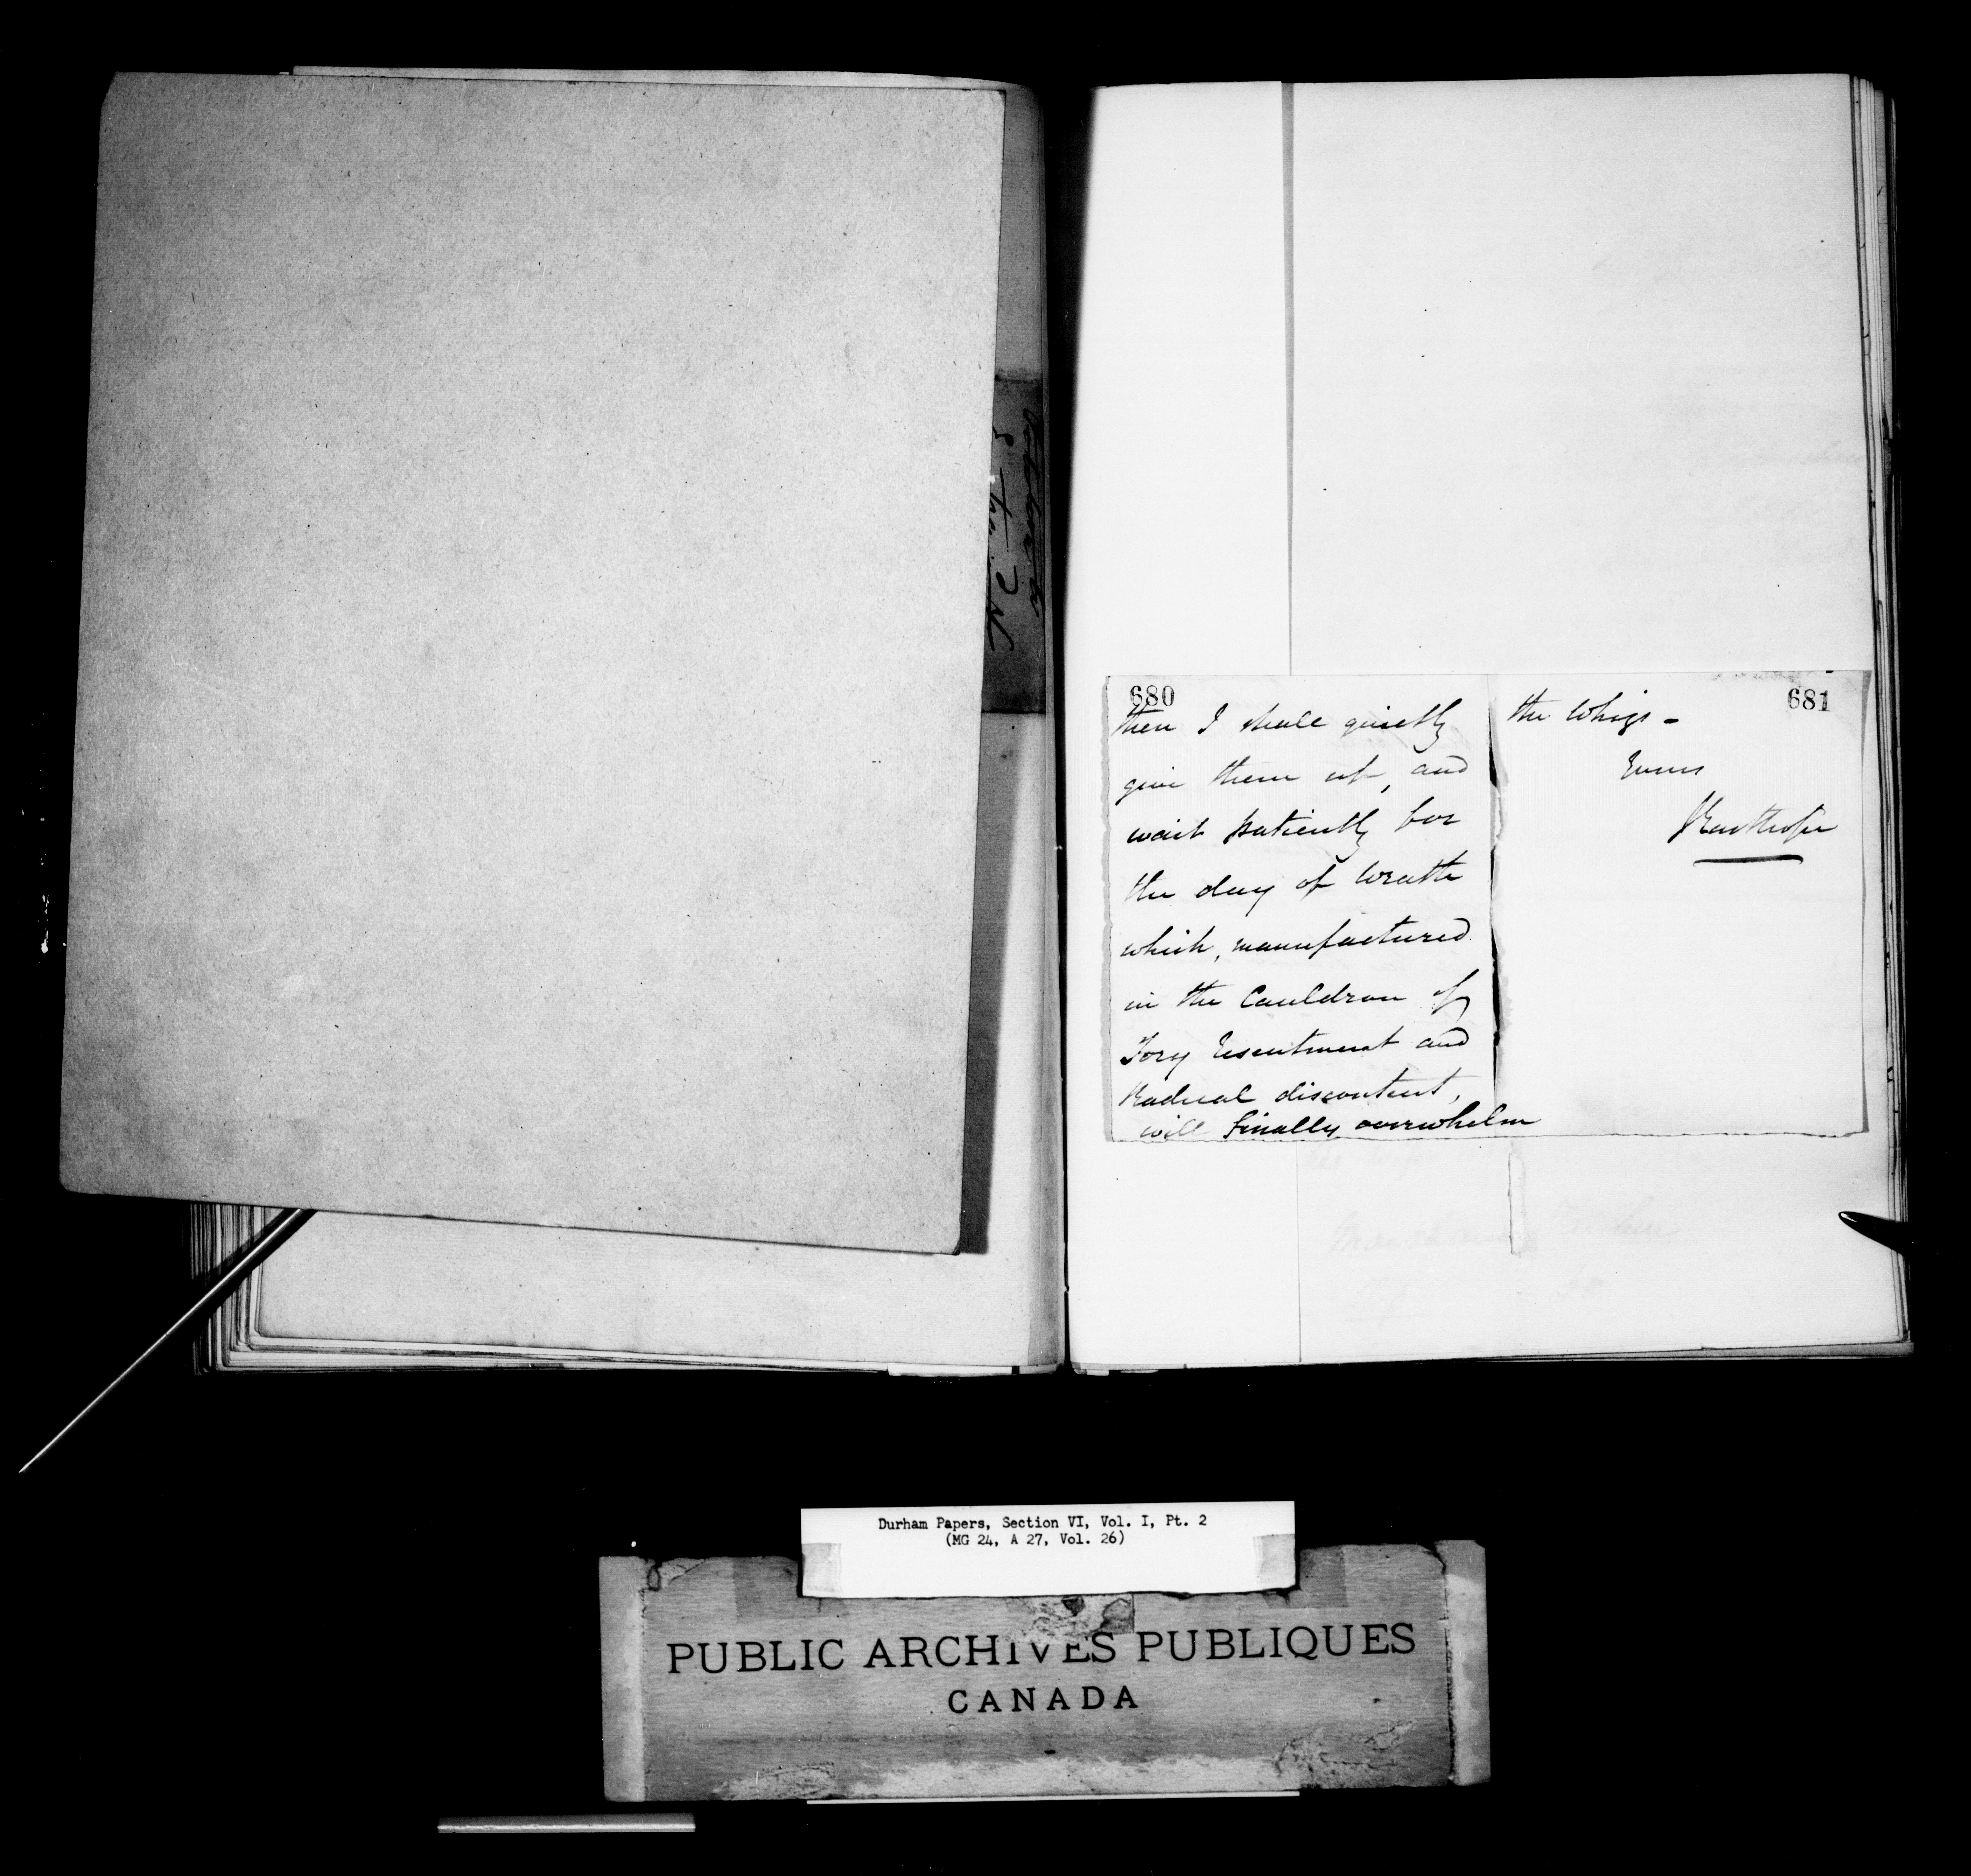 680
then I shall quietly
give them up, and
wait patiently for
the day of wrath
which, manufactured
in the Cauldron of
Tory resentment and
Radical discontent,
will finally overwhelm
681
the Whigs -
Yours
Durham Papers, Section VI, Vol. I, Pt. 2
(MG 24, A 27, Vol. 26)
PUBLIC ARCHIVES PUBLIQUES
CANADA